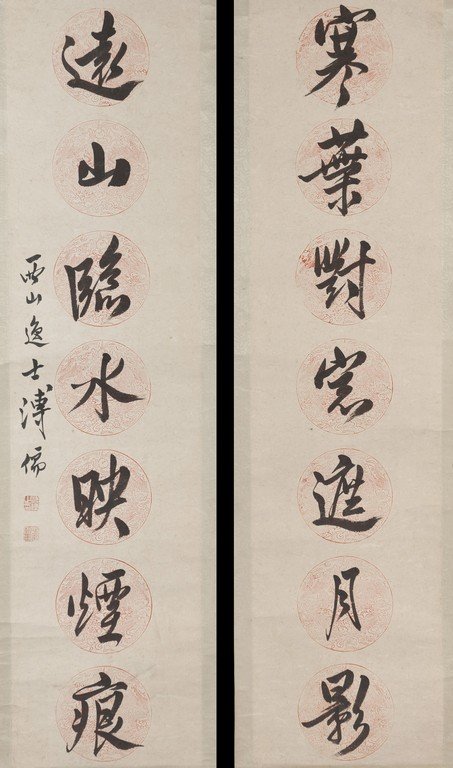 寒葉對窓遮月影
遠山臨水映煙痕
西山逸士溥儒